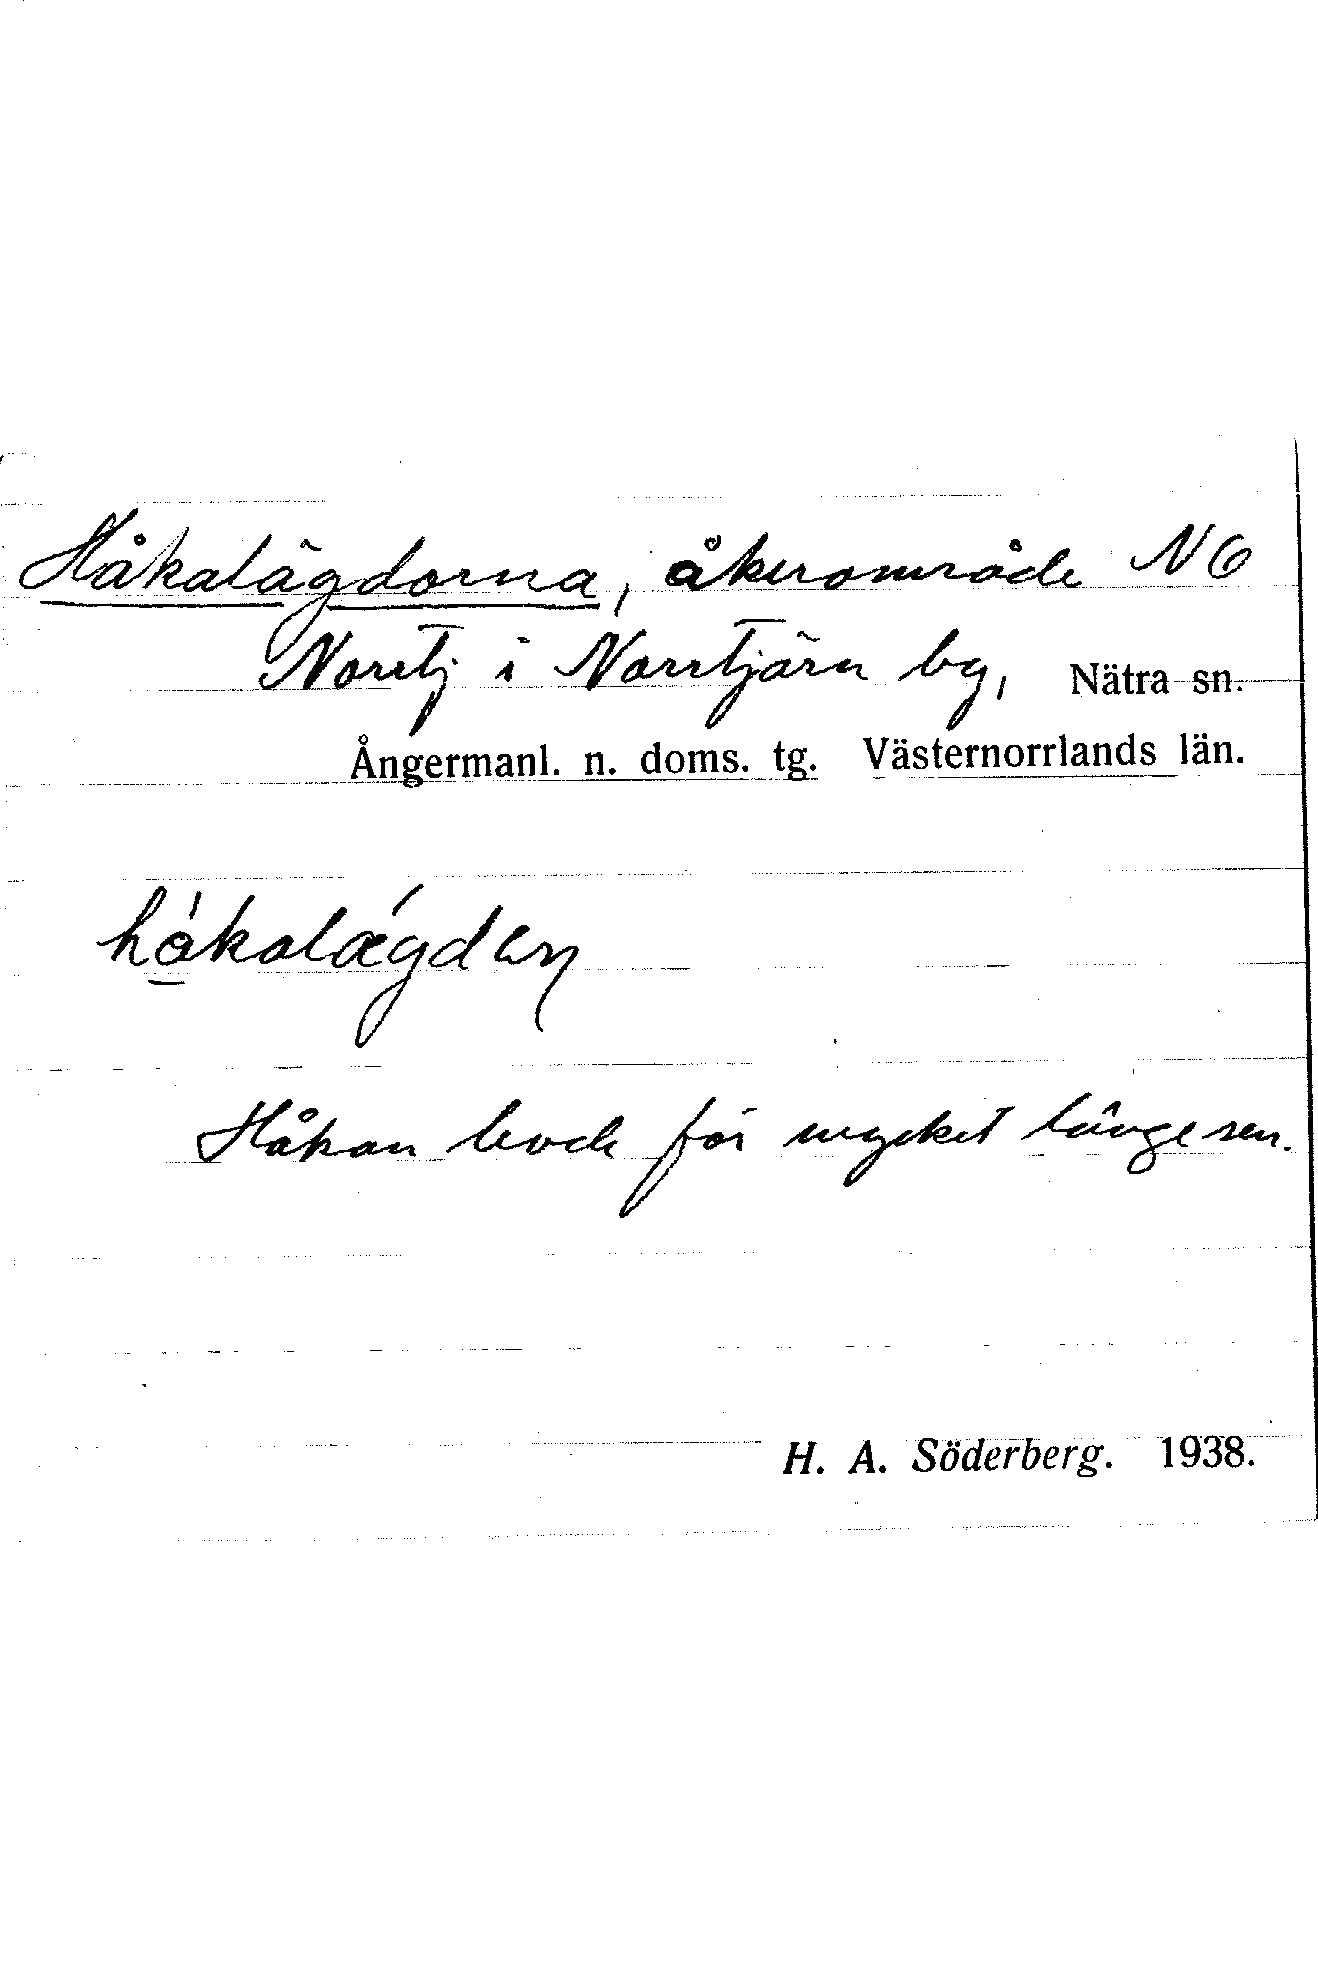 Håkalägdorna, åkerområde NO
Norrtj i Norrtjärn by, Nätra sn.
Ångermanl. n. doms. tg. Västernorrlands län.
hǻ̲kalǽgdeɳ
Håkan levde för mycket länge sen.
H. A. Söderberg. 1938.